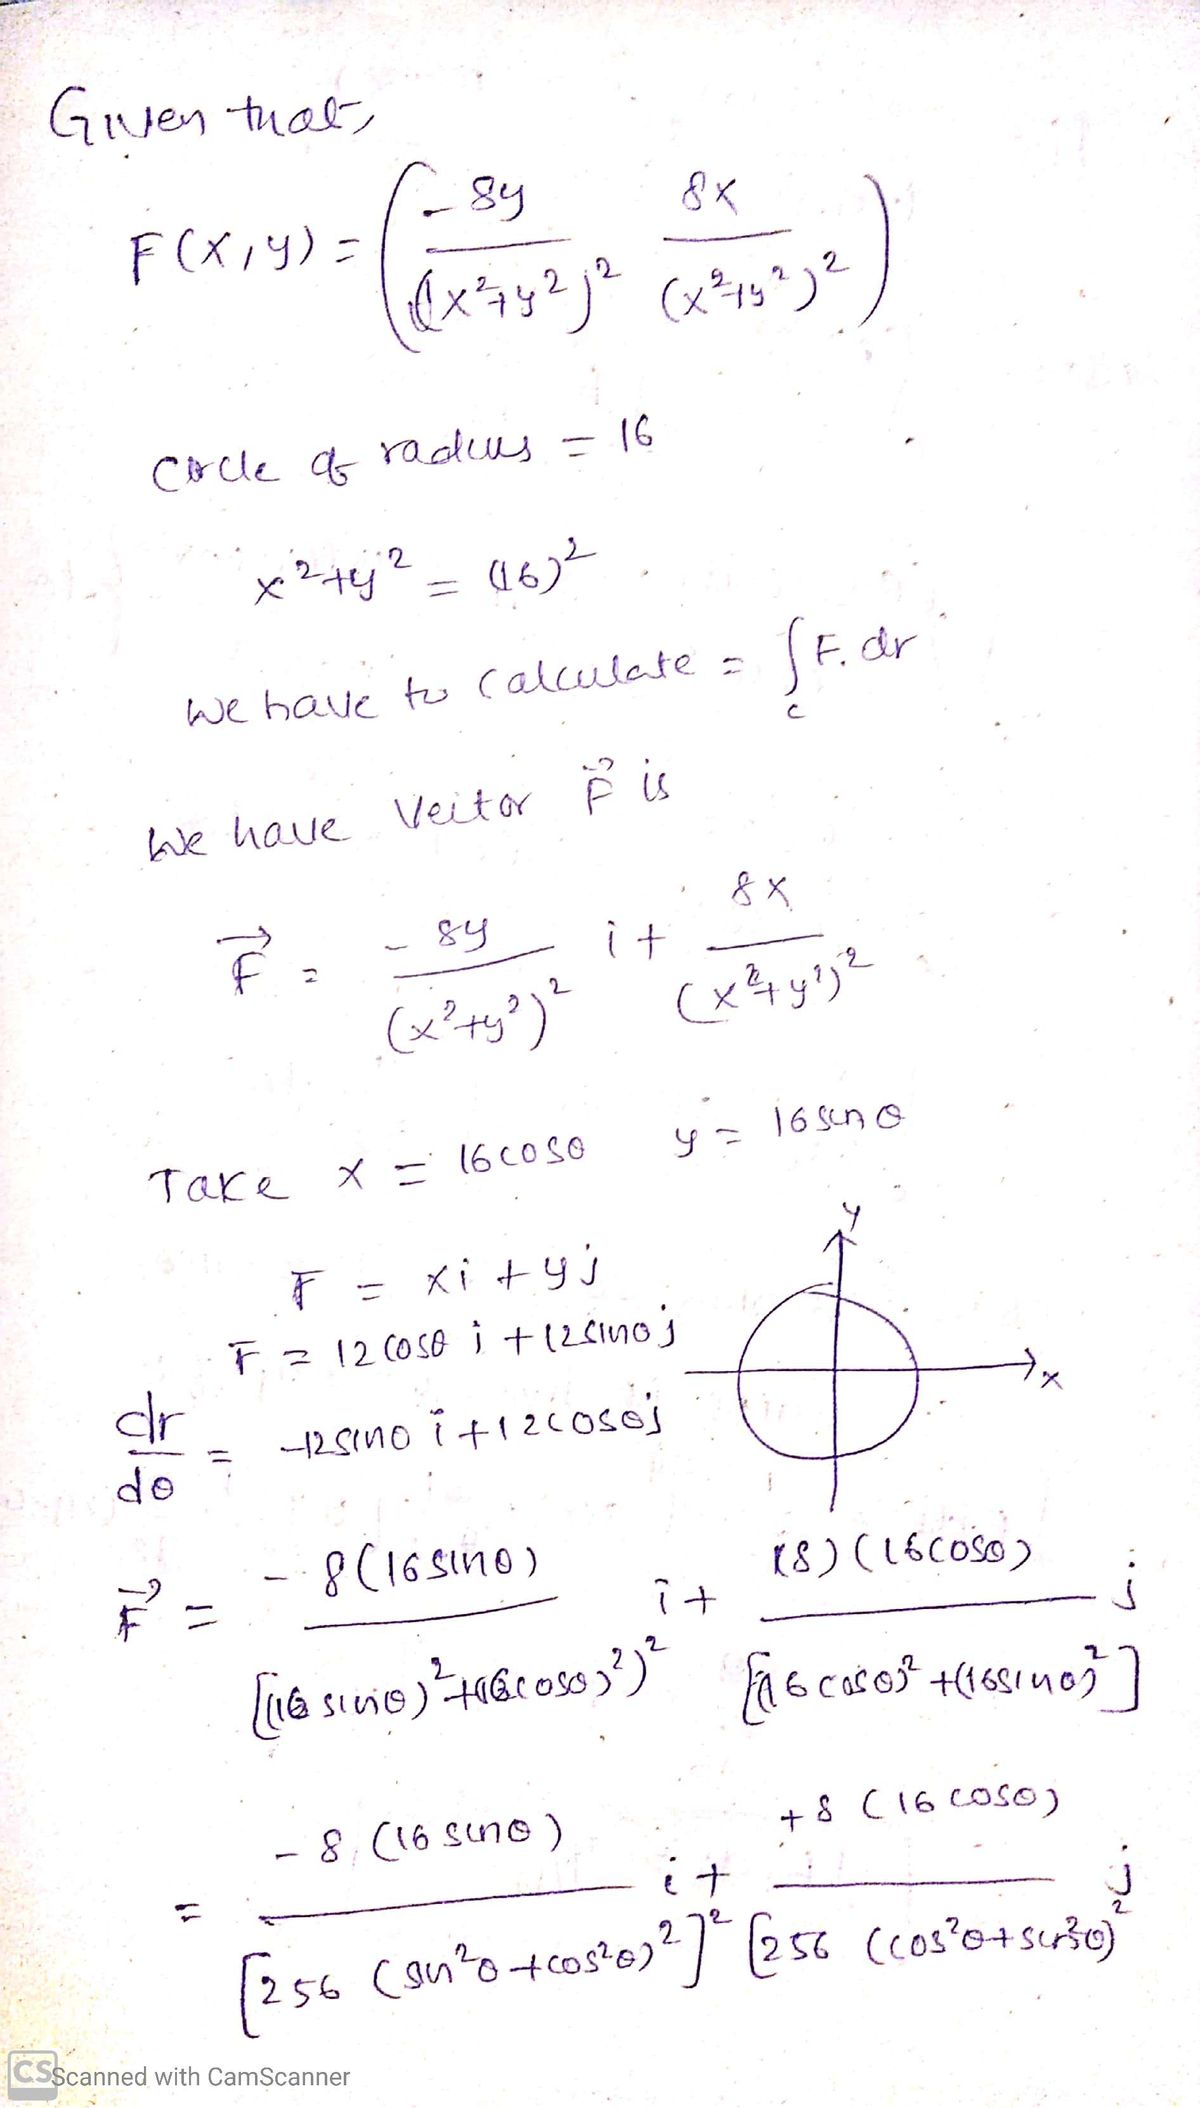 Given that,
F(x,y) = ( -8y / (x²+y²)² 8x / (x²+y²)² )
Circle of radius = 16
x²+y² = (16)²
We have to calculate = ∫c F.dr
We have Veitor F⃗ is
F⃗ = -8y / (x²+y²)² i + 8x / (x²+y²)²
Take x = 16cosθ y = 16sinθ
y
r̄ = xi + yj
r̄ = 12cosθ i + 12sinθ j
x
dr/dθ = -12sinθ i + 12cosθ j
F⃗ = -8(16sinθ) / [(16sinθ)²+(16cosθ)²)² i + (8)(16cosθ) / [(16cosθ)²+(16sinθ)²] j
= -8(16sinθ) / [256 (sin²θ+cos²θ)²]² i + +8(16cosθ) / [256 (cos²θ+sin²θ)² j
CS Scanned with CamScanner